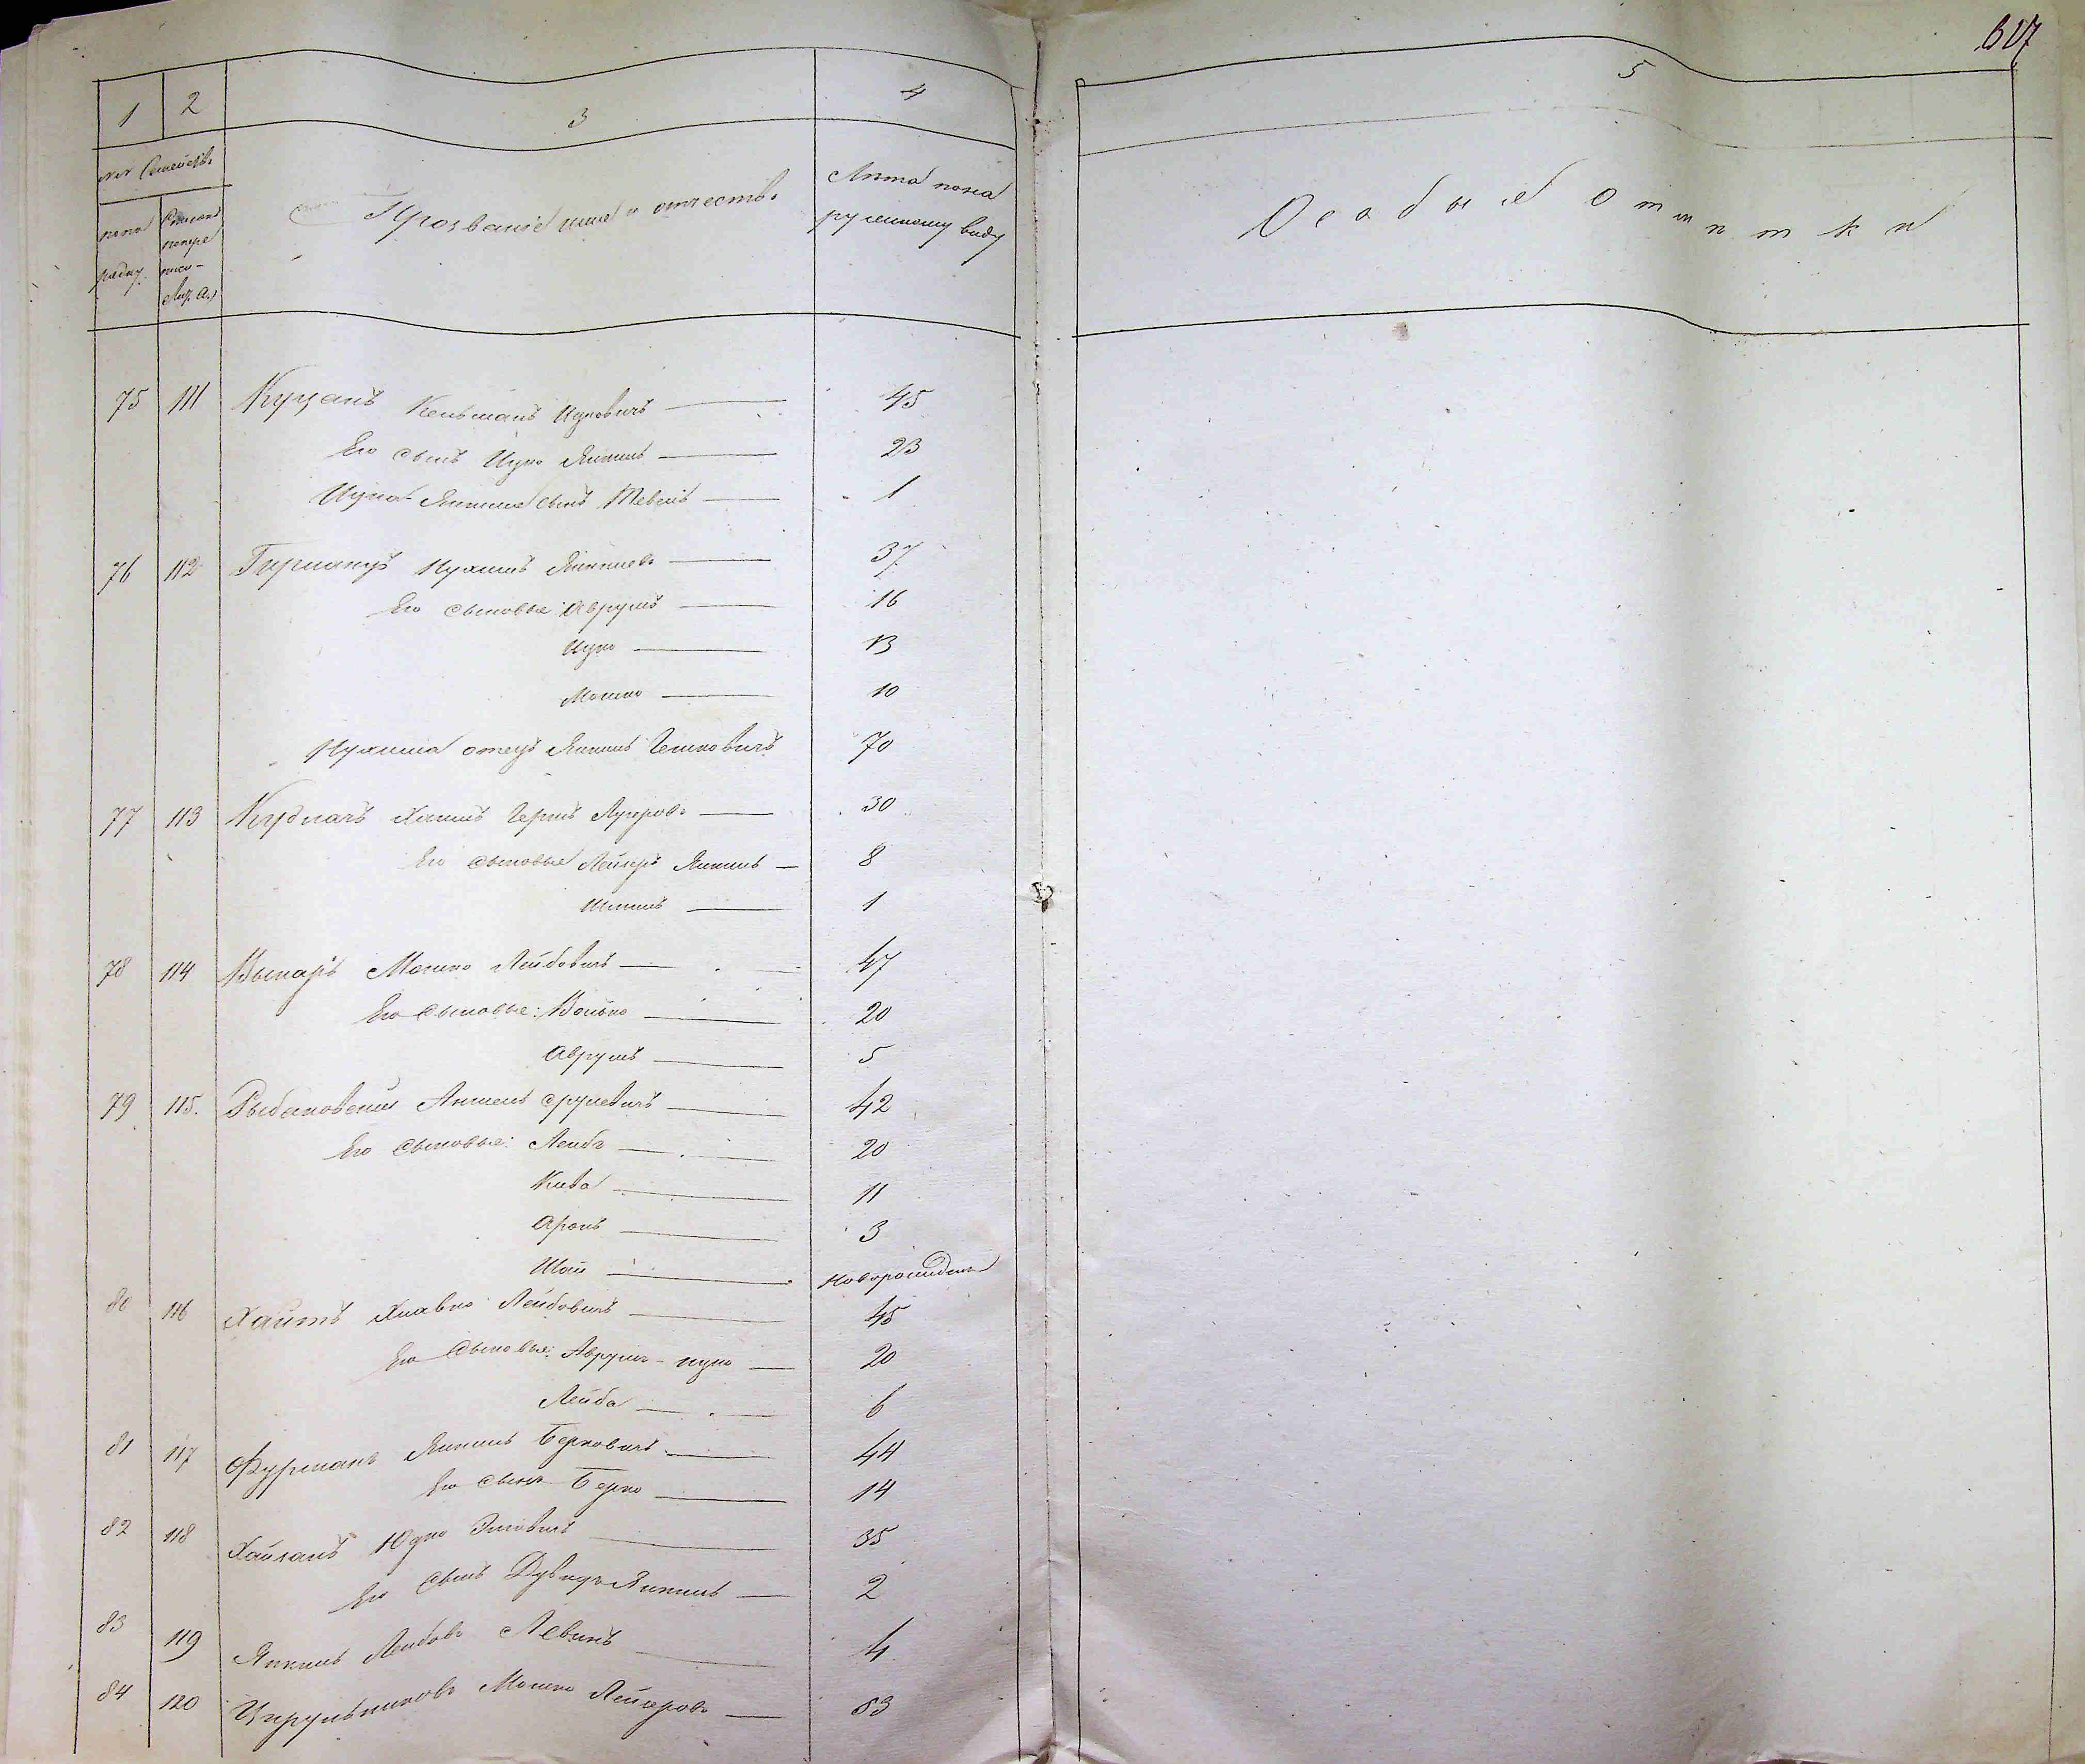 607
1 2 3 4 5
№№ Семействъ
Прозваніе имя и отчество
Лѣта по на
ружному виду
Особыя отмѣтки
по по
рядку
75 111 Куцанъ Кельманъ Ицковичъ 45
Его сынъ Ицко Янкель 23
Ицка Янкеля сынъ Тевель 1
76 112 Нухимъ Янкелевъ 37
Его сыновья: Аврумъ 16
Ицко 13
Мошко 10
Нухима отецъ Янкель Гешковичъ 70
77 113 Кудлачъ Хаимъ Герш Лузеровъ 30
Его сыновья Лейзеръ Янкель 8
1
78 114 Мошко Лейбовичъ 47
Его сыновья: Волько 20
Аврумъ 5
79 115. Рыбаковскій Аншель Срулевичъ 42
Его сыновья: Лейбъ 20
Кива 11
Аронъ 3
Шая Новорожденъ
80 116 Хаитъ Хлавно Лейбовичъ 45
Его сыновья: Аврумъ-ицко 20
Лейба 6
81 117 Фурманъ Янкель Берковичъ 44
Его сынъ Берко 14
82 118 Юдко 35
Его сынъ Дувидъ Янкель 2
83 119 Янкель Лейбовъ Левинъ 4
84 120 Цирульниковъ Мошко Лейзеровъ 53